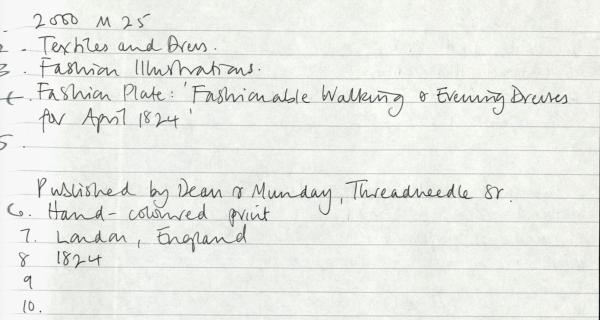 2000 M 25
2. Textiles and Dress.
3. Fashion Illustrations.
Fashion Plate: 'Fashionable Walking & Evening Dresses
for April 1824'
5.
Published by Dean & Munday, Threadneedle St.
6. Hand-coloured print
7. London, England
8 1824
9
10.